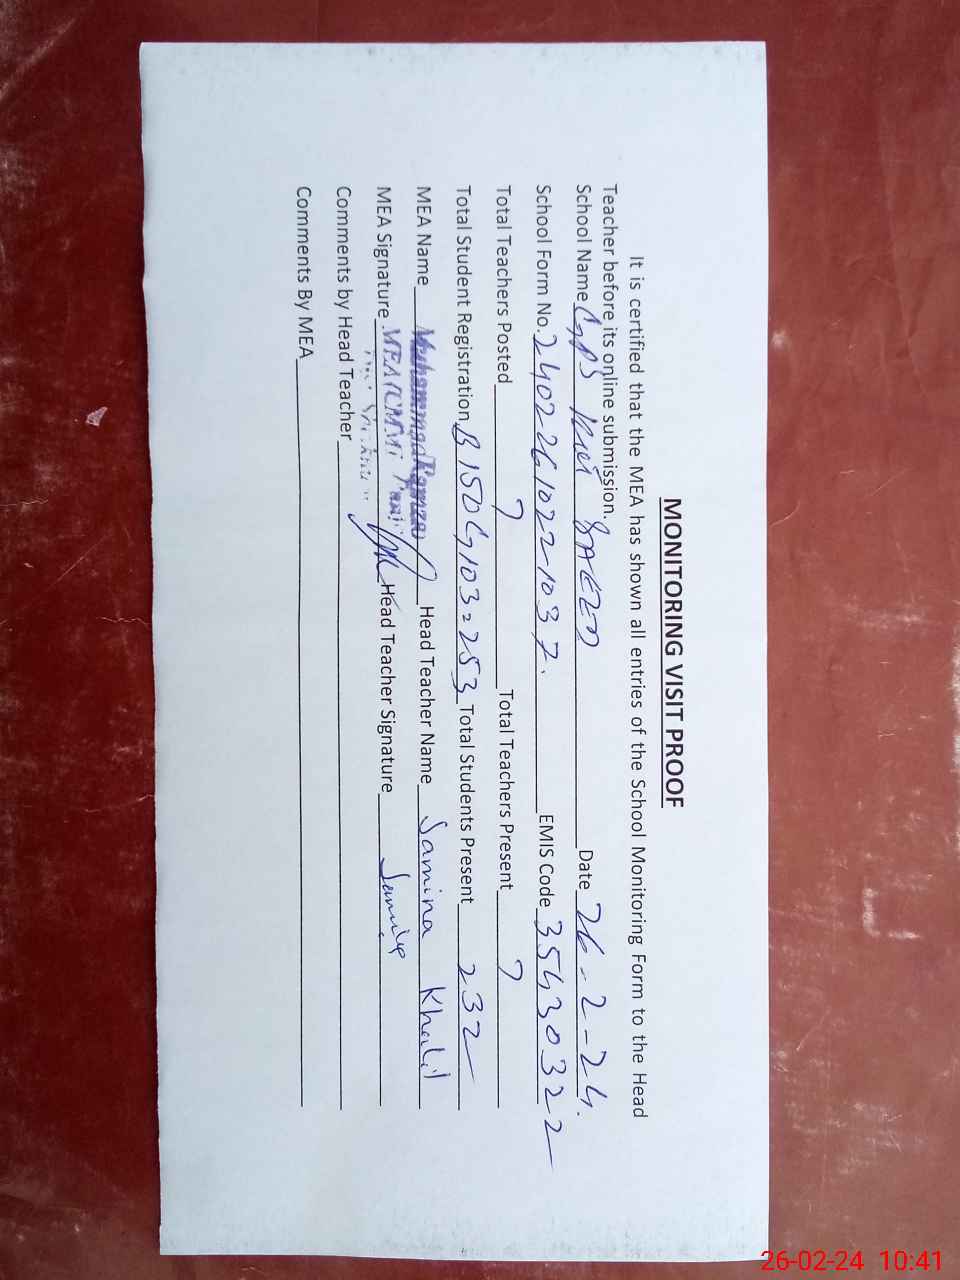 MONITORING VISIT PROOF
It is certified that the MEA has shown all entries of the School Monitoring Form to the Head
Teacher before its online submission.
School Name GPS SAEED Date 26-2-24.
School Form No. 2402261022-1037. EMIS Code 35430322
Total Teachers Posted 7 Total Teachers Present 7
Total Student Registration B150 G103=253 Total Students Present 232
MEA Name Muhammad Ramzan Head Teacher Name Samina Khalil
MEA Signature MEA (CMMF Head Teacher Signature
Comments by Head Teacher
Comments By MEA
26-02-24 10:41